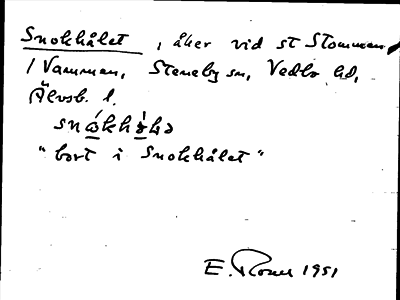 Snokhålet, åker vid st Stommen
i Vamman, Steneby sn, Vedbo hd,
Älvsb. l.
"bort i Snokhålet"
E. 1951